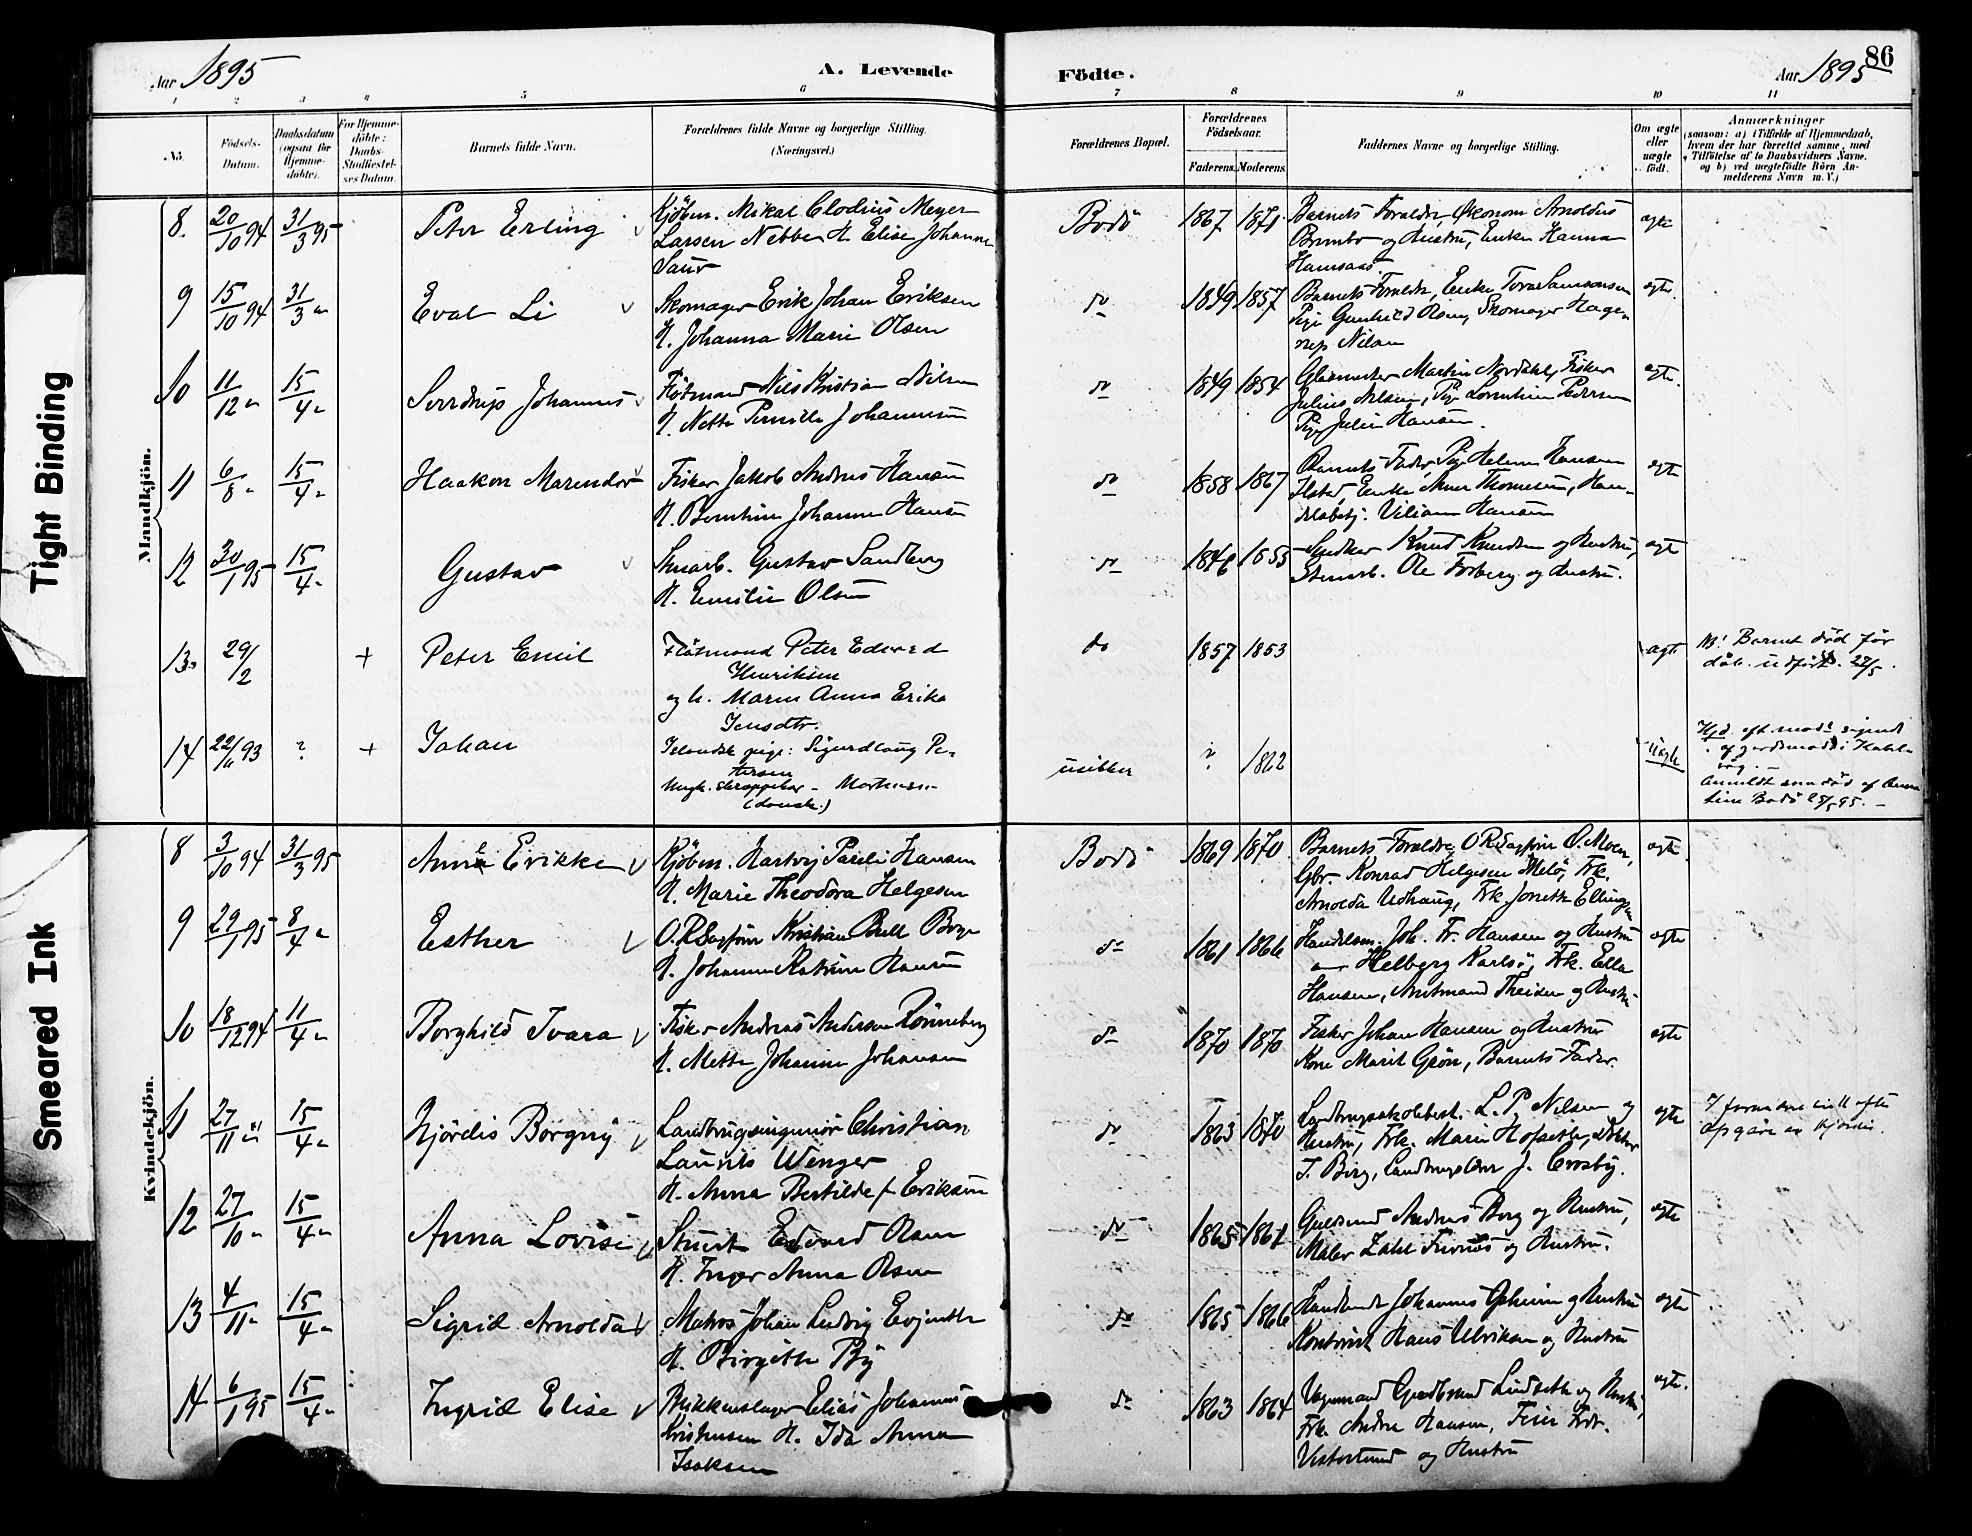 Aar 1895
A. Levende
Födte.
Aar 1895
86
1 2 3 4 5 6 7 8 9 10 11
No.
Födsels-
Datum.
Daabsdatum
(ogsaa for
Hjemme-
döbte).
For Hjemme-
döbte:
Daabs-
Stadfæstel-
ses Datum.
Barnets fulde Navn.
Forældrenes fulde Navne og borgerlige Stilling.
(Næringsvei.)
Forældrenes Bopæl.
Forældrenes
Födselsaar.
Faderens. Moderens.
Faddernes Navne og borgerlige Stilling.
Om ægte
eller
uægte
födt.
Anmærkninger
(saasom: a) i Tilfælde af Hjemmedaab,
hvem der har forrettet samme, med
Tilföielse af to Daabsvidners Navne.
og b) ved uægtefödte Börn An-
melderens Navn m. V.)
Tight Binding
Smeared Ink
Mandkjön.
8. 20/10 94 31/3 95 Peter Erling
Kjöbm. Mikal Clodius Meyer
Larsen Nebbe H. Elise Johanne
Bodö 1867 1871
Barnets Forældre, Økonom Arnoldus
og Hustru, Enke Hanna
ægte
9 15/10 94 31/3 Eval Li
Skomager Erik Johan Eriksen
H. Johanna Marie Olsen
do 1849 1857
Barnets Forældre, Enke Samsonsen
Pige Gunhild Olsen, Skomager Hage-
rup Nilsen
ægte.
10 11/12 15/4 Sverdrup Johannes
Flötmand Nils Kristian Nilsen
H. Nette Pernille Johannesen
do 1849 1854
Glasmester Martin Nordahl, Fisker
Julius Nilsen, Pige Pedersen
Pige Julie Hansen.
ægte.
11 6/8 15/4 Haakon Marendor
Fisker Jakob Andreas Hansen
H. Berntine Johanne Hansen
do 1858 1867
Barnets Fader, Pige Helene Hansen
Enke Anne Thomesen, Han-
delsbetj. Viliam Hansen
ægte
12 30/1 95 15/4 Gustav
Gustav Sandberg
H. Emilie Olsen
do 1846 1855
Snedker Knud Knudsen og Hustru,
Stenarb. Ole Forberg og Hustru.
ægte
13. 29/2 + Peter Emil
Flötmand Peter Edvard
Henriksen
og h. Maren Anna Erika
Jensdtr.
do 1857 1853
ægte
NB! Barnet död för
daab. udfört. 22/5.
14 22/11 93 ? + Johan
Islandsk pige: Sigurdlaug Pe-
tersen
Ungk. skræppekar - Mortensen
(dansk.)
usikker ? 1862
uægte
Anmeldt som död af
Bodö 25/5 95.
Kvindekjön.
8 3/10 94 31/3 95 Anna Erikke
Kjöbm. Hartvig Pareli Hansen
H. Marie Theodora Helgesen
Bodö 1869 1870
Barnets Forældre, O.R.Sagförer O. Moen,
Gbr. Konrad Helgesen Melö, Frk.
Arnolda Udhaug, Frk. Jonette Ellingsen
ægte.
9 29/1 95 8/4 Esther
O.R.Sagförer Kristian Bull Borge
H. Johanne Katrine Hansen
do 1861 1866
Handelsm. Joh. Fr. Hansen og Hustru
Helberg Karlsö, Frk. Ella
Hansen, Amtmand Theisen og Hustru.
ægte
10 18/12 94 11/4 Borghild Ivara
Fisker Andreas Andersen Rönneberg
H. Mette Johanne Johansen
do 1870 1870
Fisker Johan Hansen og Hustru
Kone Marit Grön, Barnets Fader.
ægte
11 27/11 15/4 Hjördis Borgny
Landbrugsingeniör Christian
Laurits Wenger
H. Anna Bertilde f. Eriksen
do 1863 1870
Landbrugsskolebest. L. P. Nilsen og
Hustru, Frk. Marie Hofseth, Doktor
J. Berg, Landbrugslærer J. Crosby.
ægte
12 27/10 15/4 Anna Lovise
Stuert Edvard Olsen
H. Inger Anna Olsen
do 1865 1861
Guldsmed Andreas Borg og Hustru,
Maler Zahl og Hustru.
ægte
13 4/11 15/4 Sigrid Arnolda
Matros Johan Ludvig Evjenth
H. Birgitte By
do 1865 1866
Johannes og Hustru
Kontorist Hans Ulriksen og Hustru
ægte
14 6/1 95 15/4 Ingrid Elise
Blikkenslager Elias Johannes
Kristensen H. Ida Anna
Isaksen
do 1863 1864
Vognmand Gudbrand Lindseth og Hustru,
Frk. Andrea Hansen,
og Hustru
ægte.